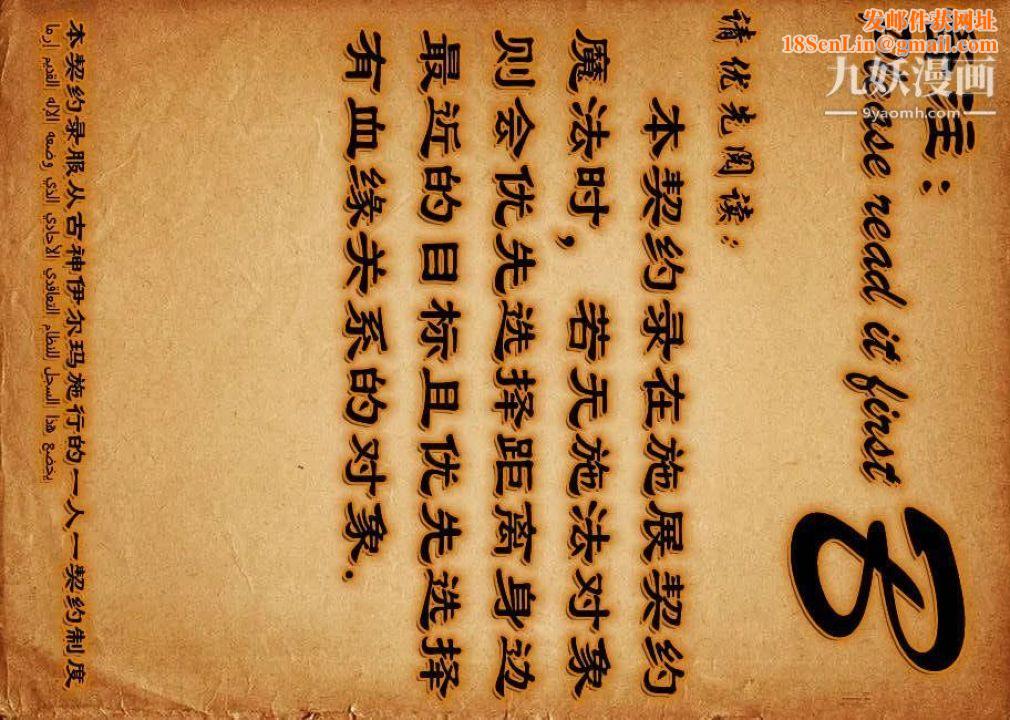 发邮件获网址
18SenLin@gmail.com
九妖漫画
9yaomh.com
注：
Please read it first
请优先阅读；
本契约录在施展契约
魔法时，若无施法对象
则会优先选择距离身边
最近的目标且优先选择
有血缘关系的对象.
本契约录服从古神伊尔玛施行的一人一契约制度
يخضع هذا السجل للنظام التعاقدي الأحادي الذي وضعه الإله القديم إرما